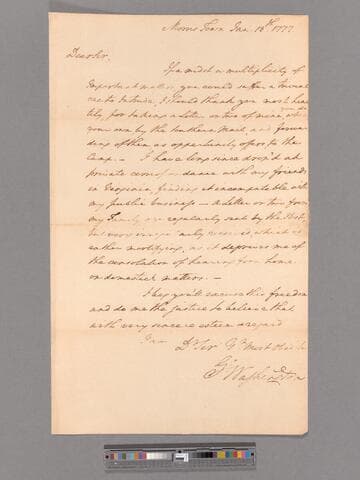 Morris Town Jan. 18th. 1777
Dear Sir,
If amidst a multiplicity of
Important matters you could suffer a trivial
one to Intrude, I should thank you most hear
tily for taking a letter or two of mine, when you do
your own by the Southern Mail, and forwar
ding of them as opportunity offers to the
Camp. — I have long since drop'd all
private correspondance with my friends
in Virginia, finding it incompatable with
my public business. — A letter or two from
my Family are regularly sent by the Post,
but very irregularly received, which is
rather mortifying, as it deprives me of
the consolation of hearing from home
on domestick matters. —
I beg you'll excuse this freedom
and do me the justice to believe that
with very sincere esteem & regard
I am
Dr Sir Yr. Most Obedt
Go: Washington